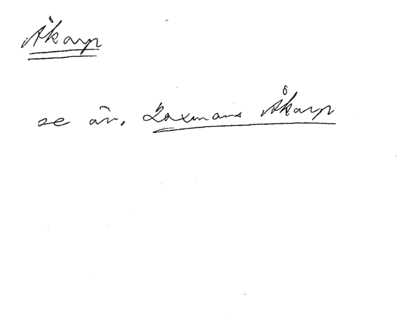 Åkarp
se äv. Laxmans Åkarp